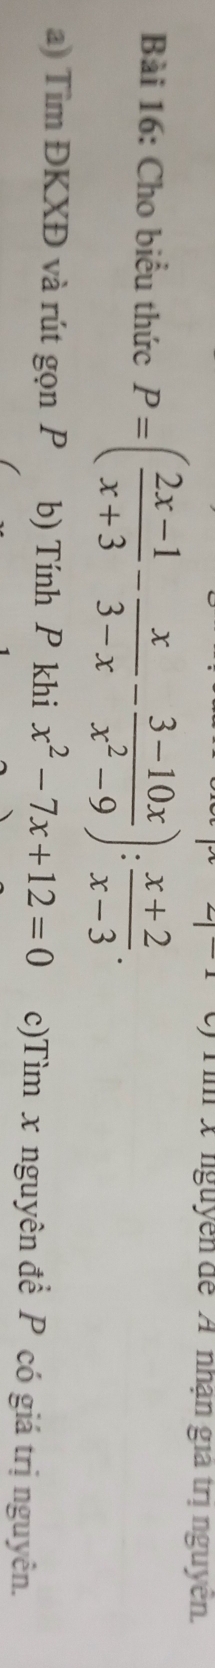 c) Tìm x nguyên để A nhận giá trị nguyên.
Bài 16: Cho biểu thức P = ( (2x−1)/(x+3) − x/(3−x) − (3−10x)/(x²−9) ) : (x+2)/(x−3).
a) Tìm ĐKXĐ và rút gọn P b) Tính P khi x² − 7x + 12 = 0 c)Tìm x nguyên để P có giá trị nguyên.